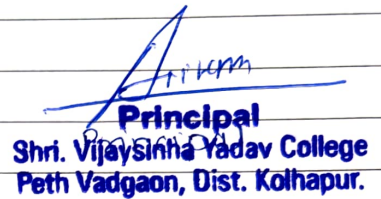 Principal
Principal
Shri. Vijaysinha Yadav College
Peth Vadgaon, Dist. Kolhapur.